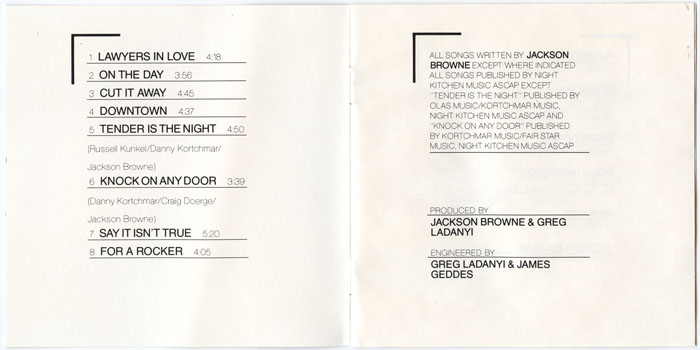 1 LAWYERS IN LOVE 4:18
2 ON THE DAY 3:56
3 CUT IT AWAY 4:45
4 DOWNTOWN 4:37
5 TENDER IS THE NIGHT 4:50
(Russell Kunkel/Danny Kortchmar/
Jackson Browne)
6 KNOCK ON ANY DOOR 3:39
(Danny Kortchmar/Craig Doerge/
Jackson Browne)
7 SAY IT ISN'T TRUE 5:20
8 FOR A ROCKER 4:05
ALL SONGS WRITTEN BY JACKSON
BROWNE EXCEPT WHERE INDICATED
ALL SONGS PUBLISHED BY NIGHT
KITCHEN MUSIC ASCAP EXCEPT
"TENDER IS THE NIGHT" PUBLISHED BY
OLAS MUSIC/KORTCHMAR MUSIC,
NIGHT KITCHEN MUSIC ASCAP AND
"KNOCK ON ANY DOOR" PUBLISHED
BY KORTCHMAR MUSIC/FAIR STAR
MUSIC, NIGHT KITCHEN MUSIC ASCAP
PRODUCED BY
JACKSON BROWNE & GREG
LADANYI
ENGINEERED BY
GREG LADANYI & JAMES
GEDDES